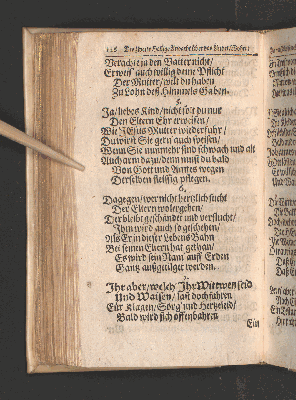 Verachte ja den Vatter nicht/
Erweiß auch willig deine Pflicht
Der Mutter/ wilt du haben
Zu Lohn deß Himmels Gaben.
5.
Ja/ liebes Kind/ nicht solt du nur
Den Eltern Ehr erweisen/
Wie JEsus Mutter wiederfuhr/
Du wirst Sie gern auch speisen/
Wenn Sie nunmehr sind schwach und alt
Auch arm dazu/ denn must du bald
Von Gott und Amtes wegen
Derselben fleissig pflegen.
6.
Dagegen/ wer nicht hertzlich sucht
Der Eltern wolergehen/
Der bleibt geschändet und verflucht/
Ihm wird auch so geschehen/
Als Er in dieser Lebens Bahn
Bei seinen Eltern hat gethan/
Es wird sein Nam auff Erden
Gantz außgetilget werden.
7.
Ihr aber/ welch' Ihr Wittwen seid
Und Waisen/ last doch fahren
Eur Klagen/ Sorg' und Hertzeleid/
Bald wird sich offenbahren
Ein